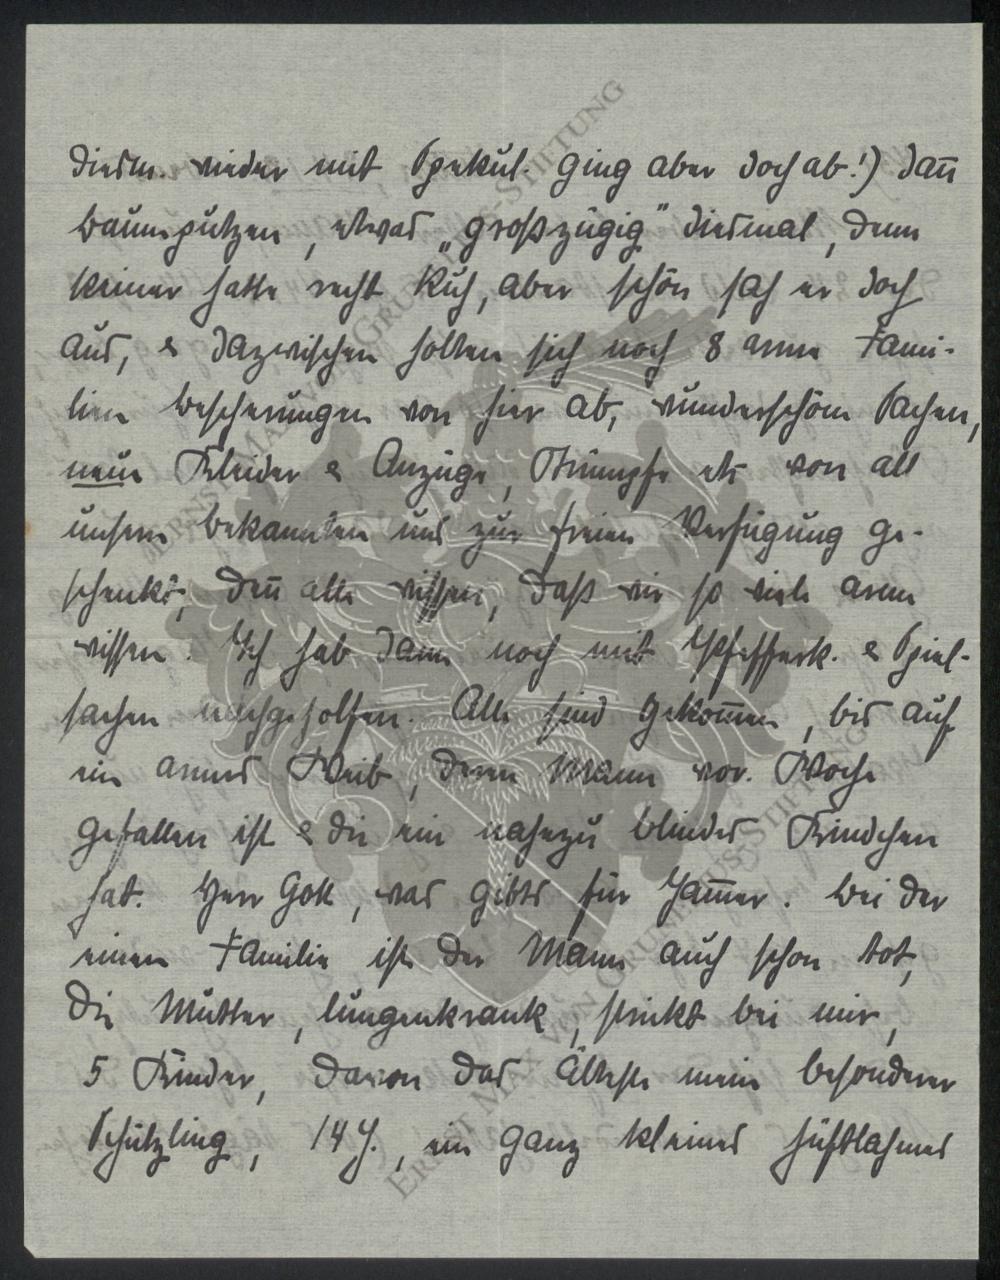 diesm. wieder mit Spekul. ging aber doch ab!) Dañ
Baumputzen, etwas „großzügig" diesmal, denn
keiner hatte recht Ruh, aber schön sah er doch
aus, & dazwischen holten sich noch 8 arme Fami-
lien Bescherungen von hier ab, wunderschöne Sachen,
neue Kleider & Anzüge, Strümpfe etc von all
unsern Bekannten uns zur freien Verfügung ge-
schenkt, deñ alle wissen, daß wir so viele arme
wissen. Ich hab dann noch mit Pfefferk. & Spiel-
sachen nachgeholfen. Alle sind gekom̄en, bis auf
ein armes Weib, deren Mann vor. Woche
gefallen ist & die ein nahezu blindes Kindchen
hat. Herr Gott, was gibts für Jam̄er. Bei der
einen Familie ist der Mann auch schon tot,
die Mutter, lungenkrank, strickt bei mir,
5 Kinder, davon das Älteste mein besonderer
Schützling, 14 J., ein ganz kleines hüftlahmes
ERNST MAX VON GRUNELIUS-STIFTUNG
ERNST MAX VON GRUNELIUS-STIFTUNG